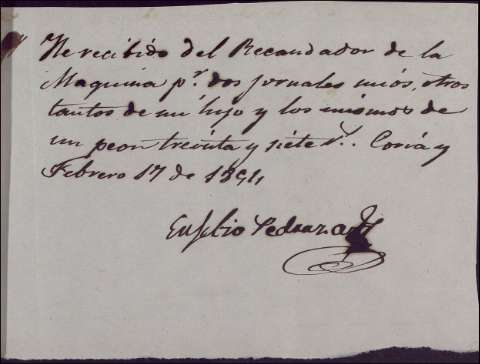 He recibido del Recaudador de la
Maquina pr. dos jornales mios, otros
tantos de mi hijo y los mismos de
un peon treinta y siete rs. Coria y
Febrero 17 de
Eusebio Pedraza